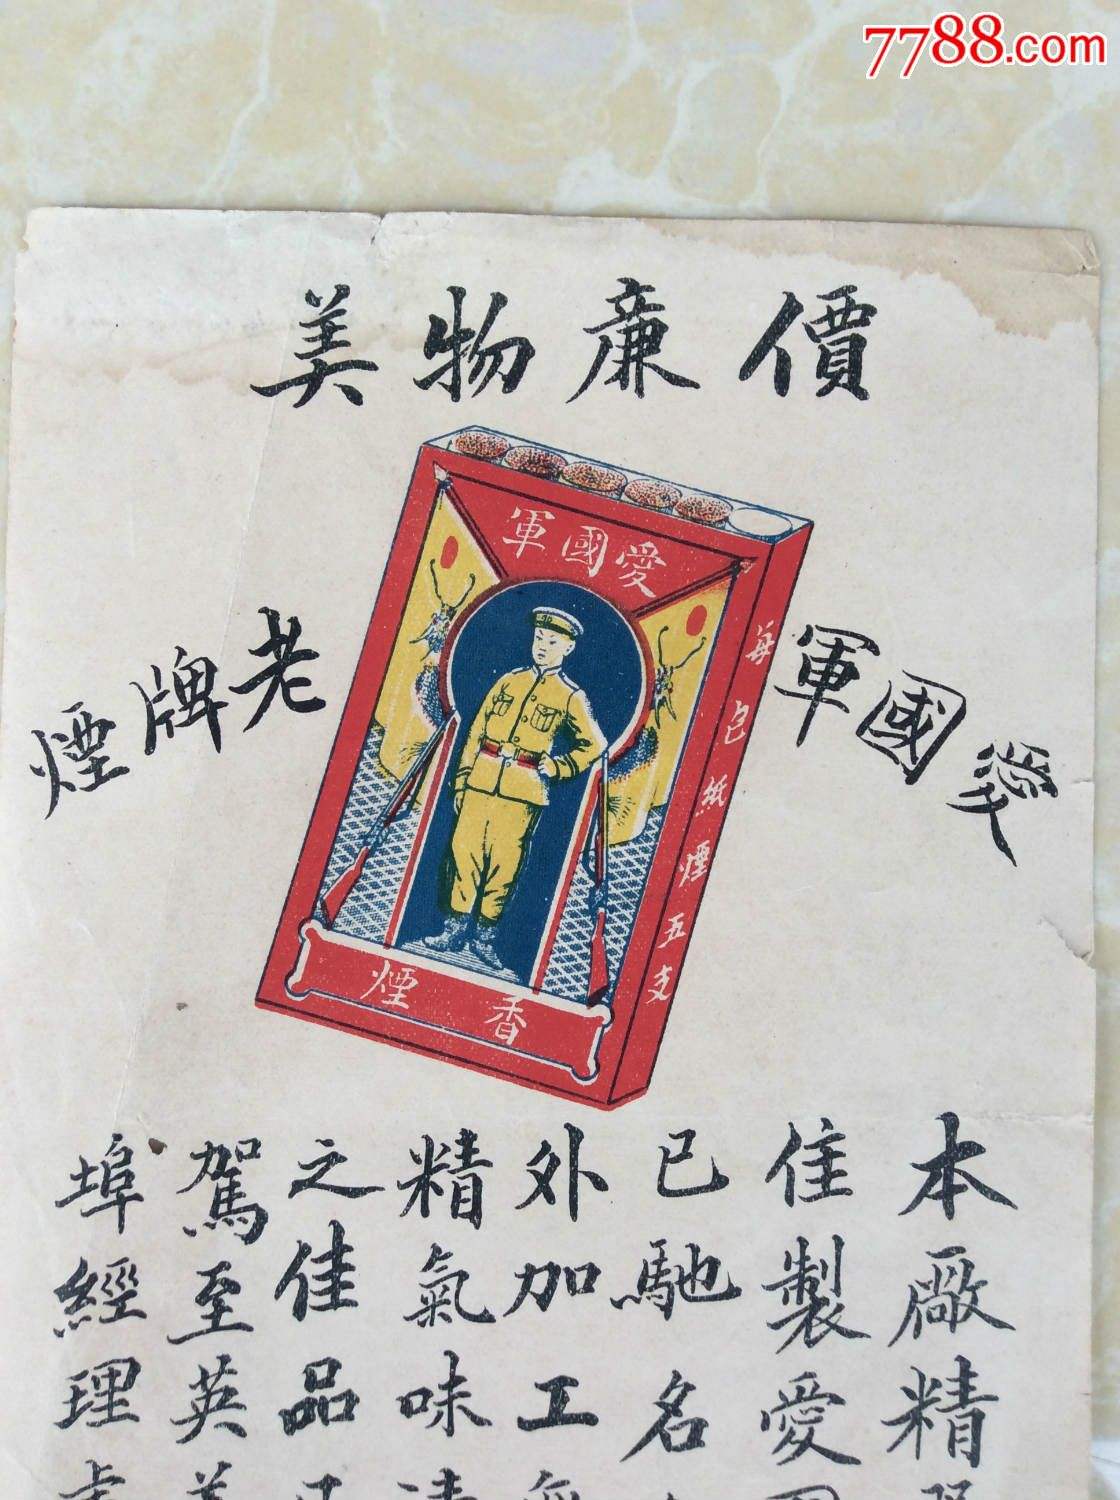 7788.com
價廉物美
愛國軍
老牌煙
愛國軍
每包紙煙五支
香煙
本廠精
佳製愛
已馳名
外加工
精氣味
之佳品
駕至英
埠經理